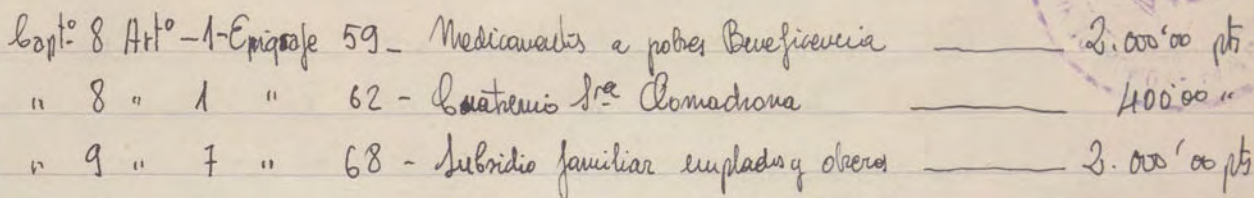 Capt.º 8 Artº - 1 - Epigrafe 59 - Medicamentos a pobres Beneficencia ——— 2.000'00 pts
" 8 " 1 " 62 - Cuatrenio Sra Comadrona ——— 400'00 "
" 9 " 7 " 68 - Subsidio familiar emplados y obreros ——— 2.000'00 pts